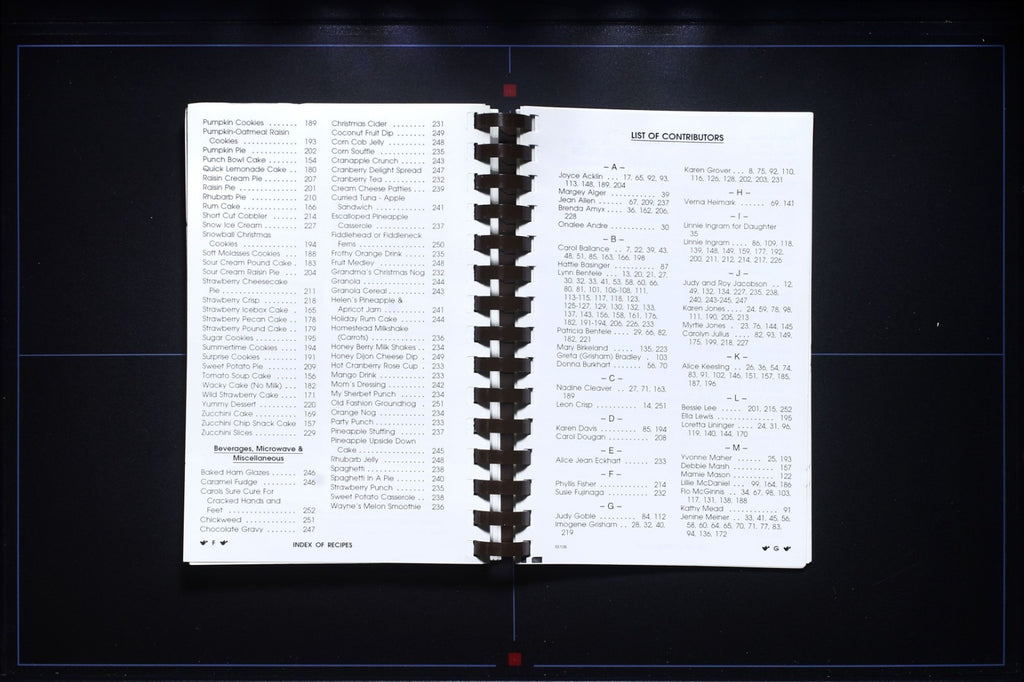 Pumpkin Cookies ....... 189
Pumpkin-Oatmeal Raisin
Cookies .............. 193
Pumpkin Pie ............ 202
Punch Bowl Cake ....... 154
Quick Lemonade Cake .. 180
Raisin Cream Pie ........ 207
Raisin Pie ............... 201
Rhubarb Pie ............ 210
Rum Cake .............. 166
Short Cut Cobbler ....... 214
Snow Ice Cream ......... 227
Snowball Christmas
Cookies .............. 194
Soft Molasses Cookies ... 188
Sour Cream Pound Cake . 183
Sour Cream Raisin Pie ... 204
Strawberry Cheesecake
Pie ................... 211
Strawberry Crisp ........ 218
Strawberry Icebox Cake .. 165
Strawberry Pecan Cake .. 178
Strawberry Pound Cake .. 179
Sugar Cookies .......... 195
Summertime Cookies .... 194
Surprise Cookies ........ 191
Sweet Potato Pie ........ 209
Tomato Soup Cake ...... 156
Wacky Cake (No Milk) ... 182
Wild Strawberry Cake .... 171
Yummy Dessert ......... 220
Zucchini Cake .......... 169
Zucchini Chip Snack Cake 157
Zucchini Slices .......... 229
Beverages, Microwave &
Miscellaneous
Baked Ham Glazes ...... 246
Caramel Fudge ......... 246
Carols Sure Cure For
Cracked Hands and
Feet .................. 252
Chickweed ............. 251
Chocolate Gravy ........ 247
Christmas Cider ......... 231
Coconut Fruit Dip ....... 249
Corn Cob Jelly .......... 248
Corn Souffle ............ 235
Cranapple Crunch ...... 243
Cranberry Delight Spread 247
Cranberry Tea .......... 232
Cream Cheese Patties ... 239
Curried Tuna - Apple
Sandwich ............. 241
Escalloped Pineapple
Casserole ............. 237
Fiddlehead or Fiddleneck
Ferns ................. 250
Frothy Orange Drink ..... 235
Fruit Medley ............ 248
Grandma's Christmas Nog 232
Granola ................ 244
Granola Cereal ......... 243
Helen's Pineapple &
Apricot Jam ........... 241
Holiday Rum Cake ...... 244
Homestead Milkshake
(Carrots) .............. 236
Honey Berry Milk Shakes . 234
Honey Dijon Cheese Dip . 249
Hot Cranberry Rose Cup . 233
Mango Drink ........... 233
Mom's Dressing ......... 242
My Sherbet Punch ...... 234
Old Fashion Groundhog . 251
Orange Nog ............ 234
Party Punch ............. 233
Pineapple Stuffing ....... 237
Pineapple Upside Down
Cake ................. 245
Rhubarb Jelly ........... 248
Spaghetti .............. 238
Spaghetti In A Pie ....... 240
Strawberry Punch ....... 235
Sweet Potato Casserole .. 238
Wayne's Melon Smoothie 236
F
INDEX OF RECIPES
LIST OF CONTRIBUTORS
– A –
Joyce Acklin ... 17, 65, 92, 93,
113, 148, 189, 204
Margey Alger ............ 39
Jean Allen ..... 67, 209, 237
Brenda Amyx ... 36, 162, 206,
228
Onalee Andre ........... 30
– B –
Carol Ballance .. 7, 22, 39, 43,
48, 51, 85, 163, 166, 198
Hattie Basinger .......... 87
Lynn Bentele ... 13, 20, 21, 27,
30, 32, 33, 41, 53, 58, 60, 66,
80, 81, 101, 106-108, 111,
113-115, 117, 118, 123,
125-127, 129, 130, 132, 133,
137, 143, 156, 158, 161, 176,
182, 191-194, 206, 226, 233
Patricia Bentele .... 29, 66, 82,
182, 221
Mary Birkeland ..... 135, 223
Greta (Grisham) Bradley . 103
Donna Burkhart ...... 56, 70
– C –
Nadine Cleaver .. 27, 71, 163,
189
Leon Crisp ......... 14, 251
– D –
Karen Davis ........ 85, 194
Carol Dougan .......... 208
– E –
Alice Jean Eckhart ...... 233
– F –
Phyllis Fisher ............ 214
Susie Fujinaga .......... 232
– G –
Judy Goble ........ 84, 112
Imogene Grisham .. 28, 32, 40,
219
Karen Grover ... 8, 75, 92, 110,
116, 126, 128, 202, 203, 231
– H –
Verna Heimark ...... 69, 141
– I –
Linnie Ingram for Daughter
35
Linnie Ingram .... 86, 109, 118,
139, 148, 149, 159, 177, 192,
200, 211, 212, 214, 217, 226
– J –
Judy and Roy Jacobson .. 12,
49, 132, 134, 227, 235, 238,
240, 243-245, 247
Karen Jones .... 24, 59, 78, 98,
111, 190, 205, 213
Myrtle Jones . 23, 76, 144, 145
Carolyn Julius ... 82, 93, 149,
175, 199, 218, 227
– K –
Alice Keesling .. 26, 36, 54, 74,
83, 91, 102, 146, 151, 157, 185,
187, 196
– L –
Bessie Lee ..... 201, 215, 252
Ella Lewis .............. 195
Loretta Lininger .. 24, 31, 96,
119, 140, 144, 170
– M –
Yvonne Maher ...... 25, 193
Debbie Marsh .......... 157
Mamie Mason .......... 122
Lillie McDaniel ... 99, 164, 186
Flo McGinnis .. 34, 67, 98, 103,
117, 131, 138, 188
Kathy Mead ............ 91
Jenine Meiner .. 33, 41, 45, 56,
58, 60, 64, 65, 70, 71, 77, 83,
94, 136, 172
G